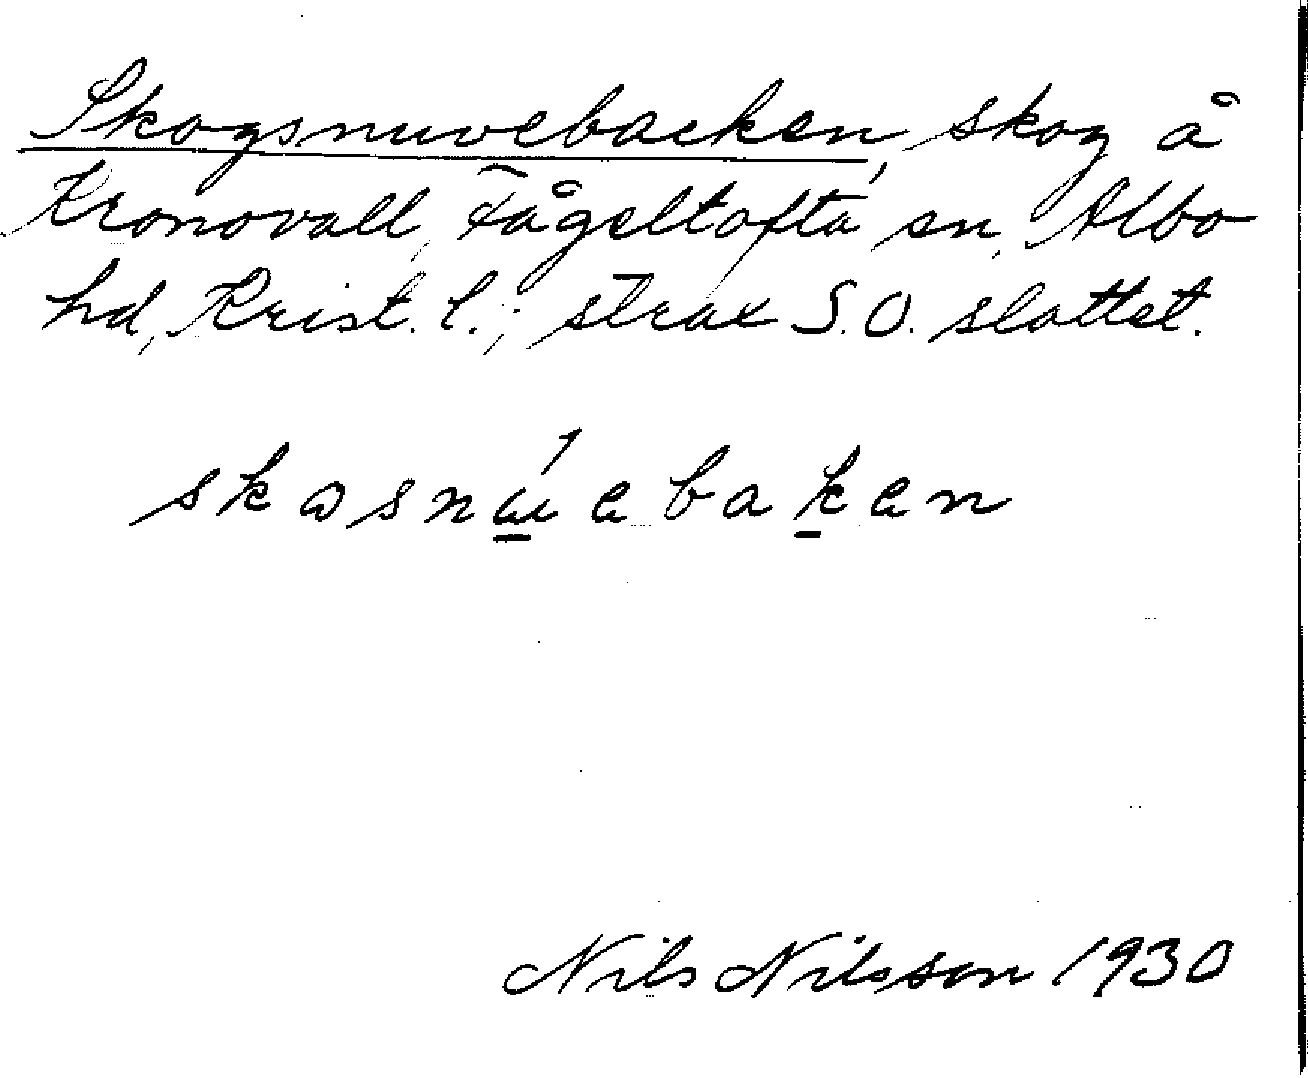 Skogsnuvebacken, skog å
Kronovall, Fågeltofta sn, Albo
hd, Krist. l.; strax S.O. slottet.
skɷsnúebaken
Nils Nilsson 1930